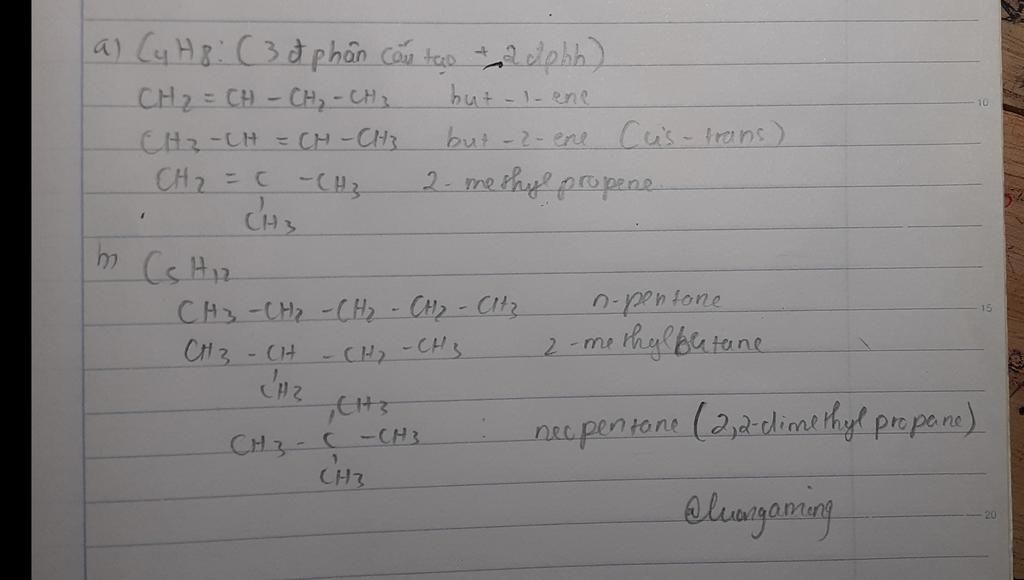 a) C4H8: (3 đ phân cấu tạo + 2 đphh)
CH2 = CH - CH2 - CH3 but-1-ene
CH3 - CH = CH - CH3 but-2-ene (cis-trans)
CH2 = C - CH3 2-methyl propene
CH3
b) C5H12
CH3 - CH2 - CH2 - CH2 - CH3 n-pentane
CH3 - CH - CH2 - CH3 2-methylbutane
CH3
CH3
CH3 - C - CH3 : neopentane (2,2-dimethyl propane)
CH3
@luongaming
10
15
20